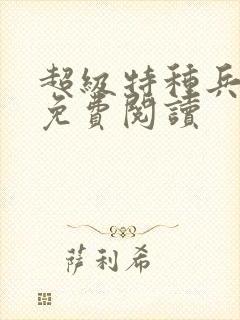 超級特種兵
免費閱讀
薩利希